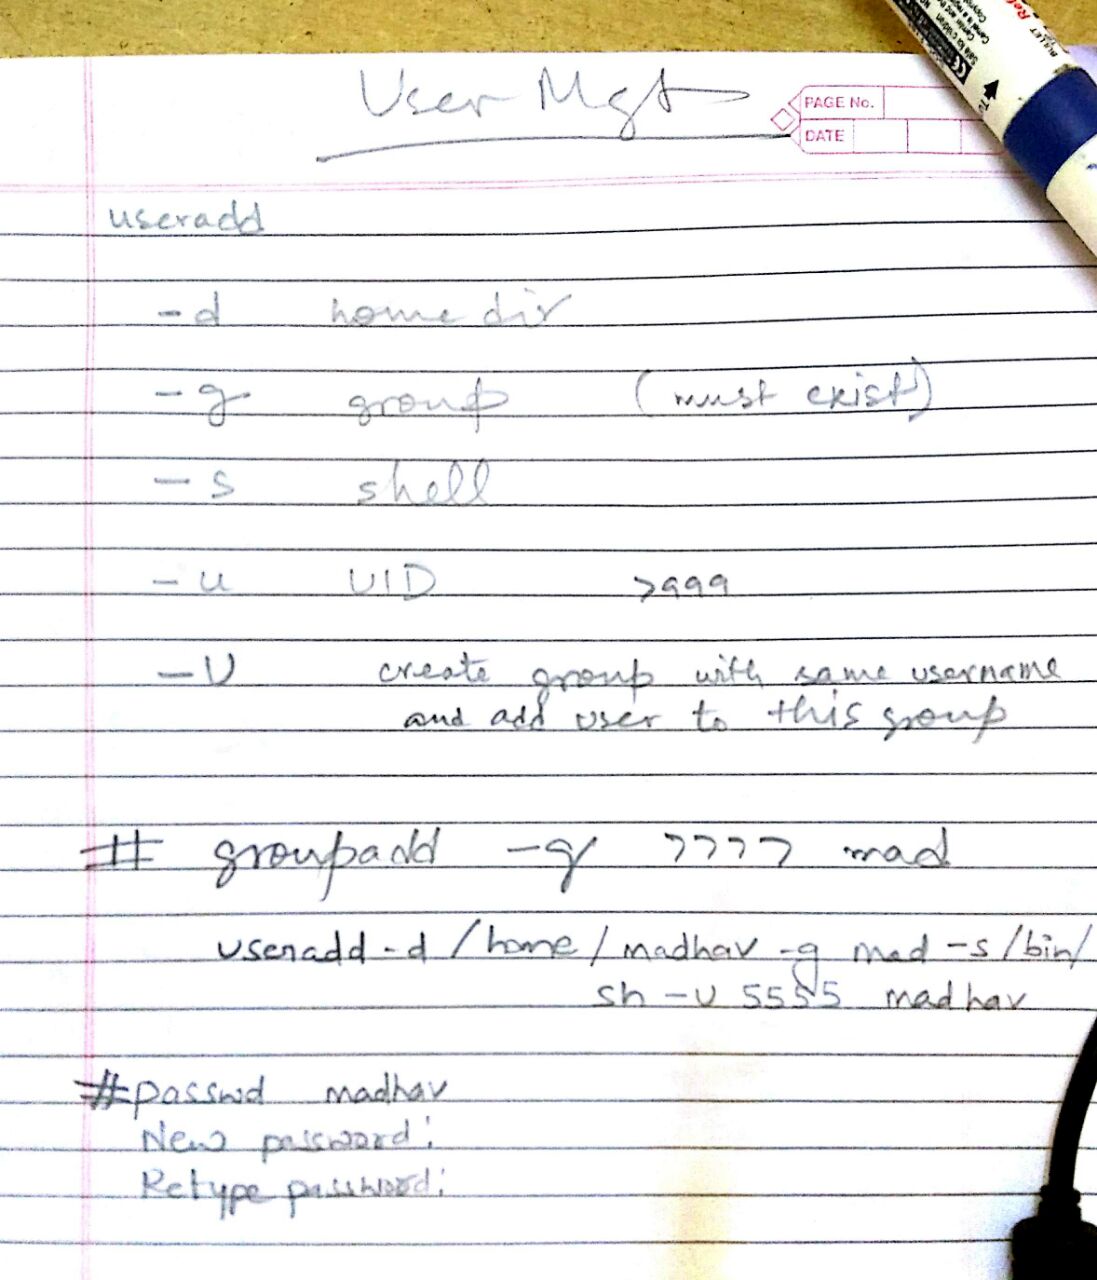 User Mgt
PAGE No.
DATE
useradd
-d home dir
-g group (must exist)
-s shell
-u UID >999
-U create group with same username
and add user to this group
# groupadd -g 7777 mad
useradd -d /home/madhav -g mad -s /bin/
sh -u 5555 madhav
#passwd madhav
New password:
Retype password:
BULLET